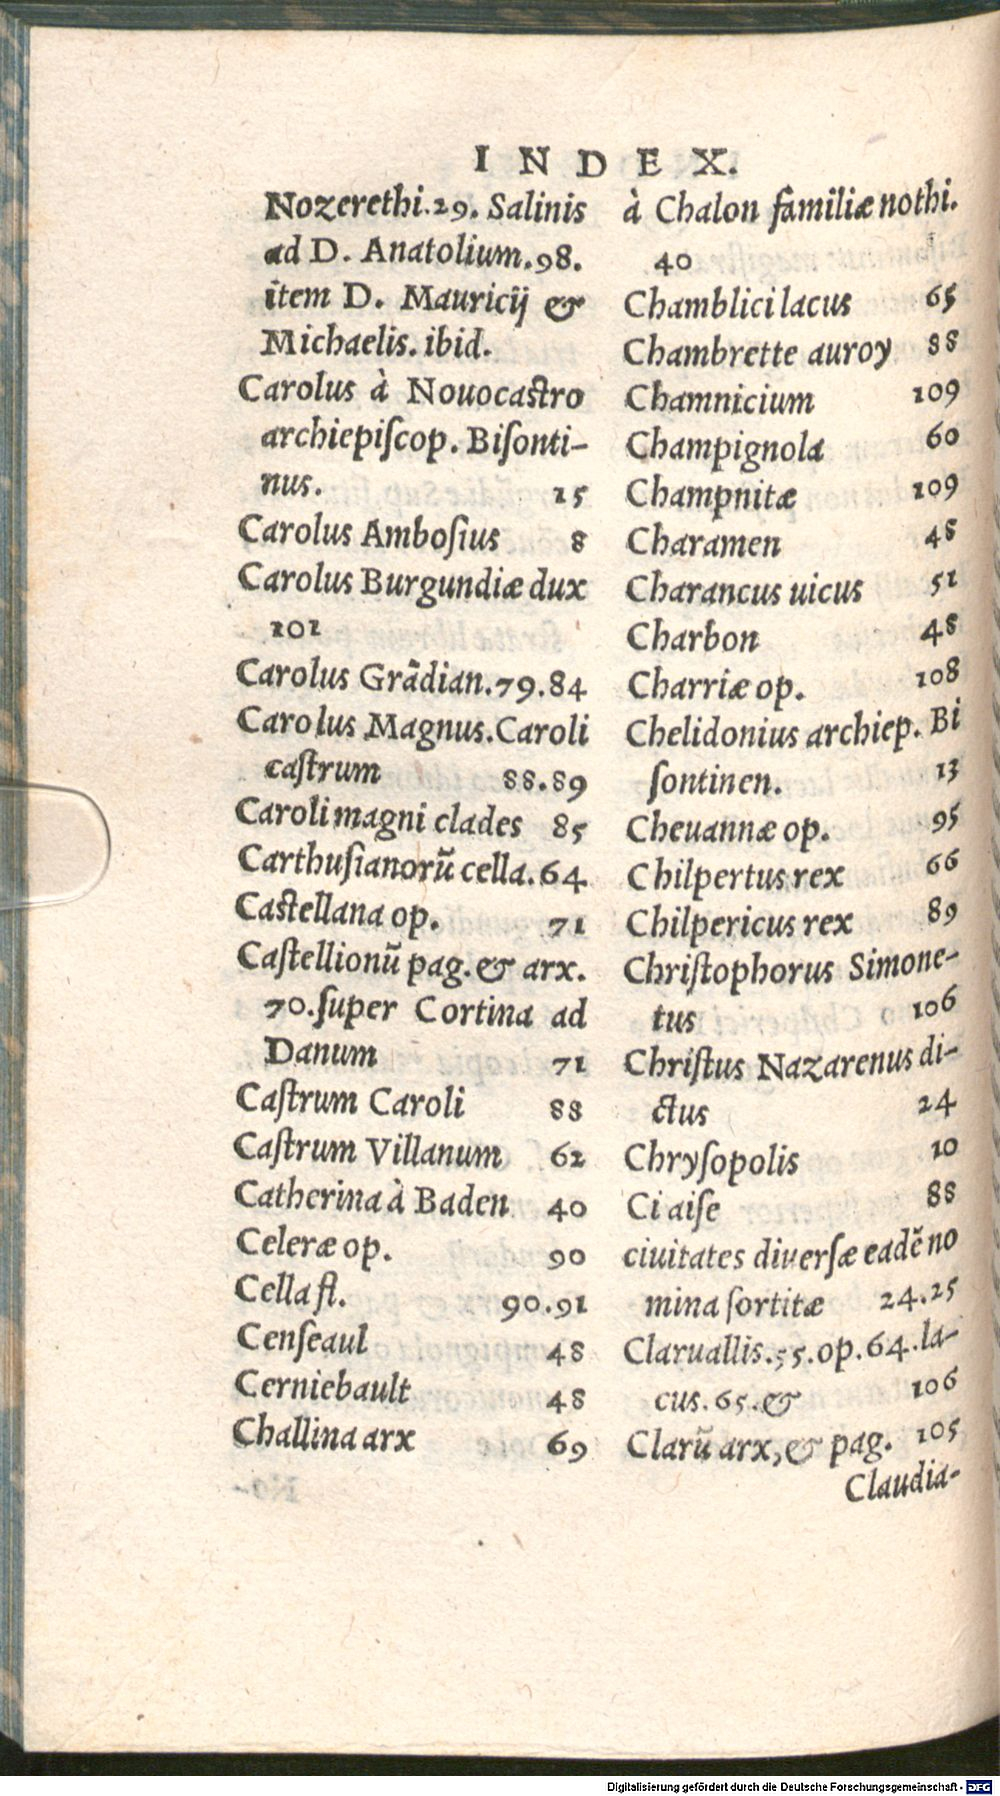 INDEX.
Nozerethi.29. Salinis
ad D. Anatolium.98.
item D. Mauricij &
Michaelis. ibid.
Carolus à Nouocastro
archiepiſcop. Biſonti-
nus. 15
Carolus Amboſius 8
Carolus Burgundiæ dux
101
Carolus Grãdian.79.84
Carolus Magnus.Caroli
caſtrum 88.89
Caroli magni clades 85
Carthuſianorũ cella.64
Castellana op. 71
Caſtellionũ pag.& arx.
70.ſuper Cortina ad
Danum 71
Caſtrum Caroli 88
Caſtrum Villanum 62
Catherina à Baden 40
Celeræ op. 90
Cella fl. 90.91
Cenſeaul 48
Cerniebault 48
Challina arx 69
à Chalon familiæ nothi.
40
Chamblici lacus 65
Chambrette auroy 88
Chamnicium 109
Champignola 60
Champnitæ 109
Charamen 48
Charancus uicus 51
Charbon 48
Charriæ op. 108
Chelidonius archiep. Bi
ſontinen. 13
Cheuannæ op. 95
Chilpertus rex 66
Chilpericus rex 89
Chriſtophorus Simone-
tus 106
Chriſtus Nazarenus di-
ctus 24
Chryſopolis 10
Ciaiſe 88
ciuitates diuerſæ eadẽ no
mina ſortitæ 24.25
Claruallis.55.op.64.la-
cus.65.& 106
Clarũ arx,& pag. 105
Claudia-
Digitalisierung gefördert durch die Deutsche Forschungsgemeinschaft - DFG